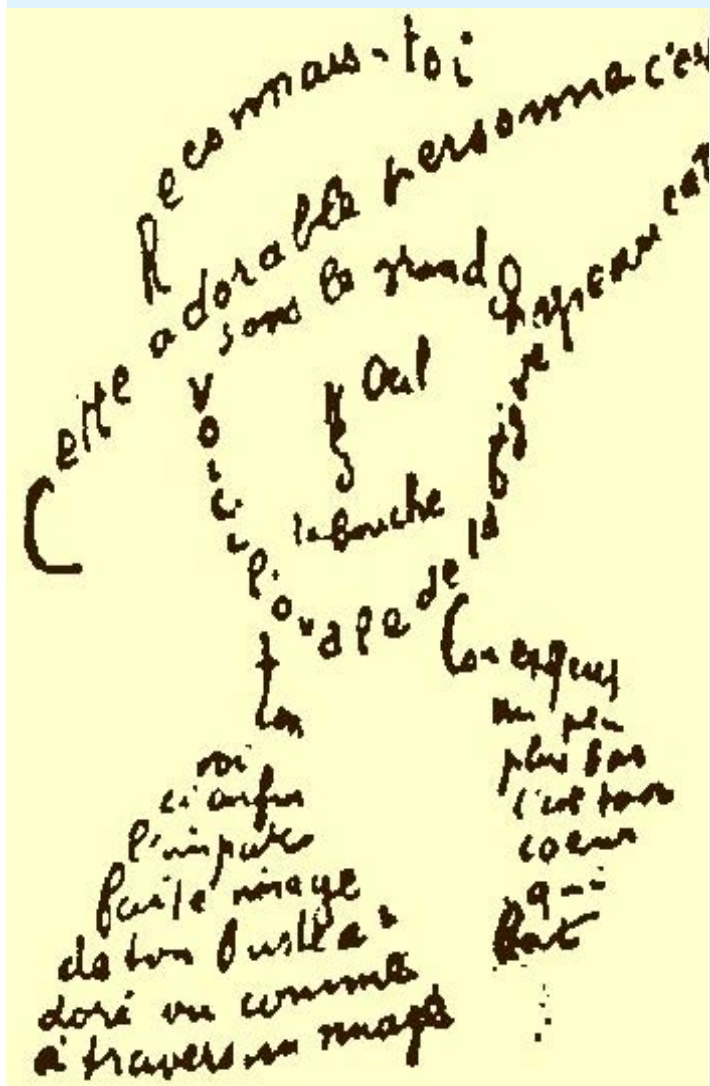 Reconnais-toi
Cette adorable personne c'es
sous le grand chapeau can
Œil
Nez
la bouche
Voici l'ovale de ta figure
ton
Cou exquis
voi
ci enfin
l'impar
faite image
de ton buste a
doré vu comme
à travers un nuage
un peu
plus bas
c'est ton
coeur
qui
bat